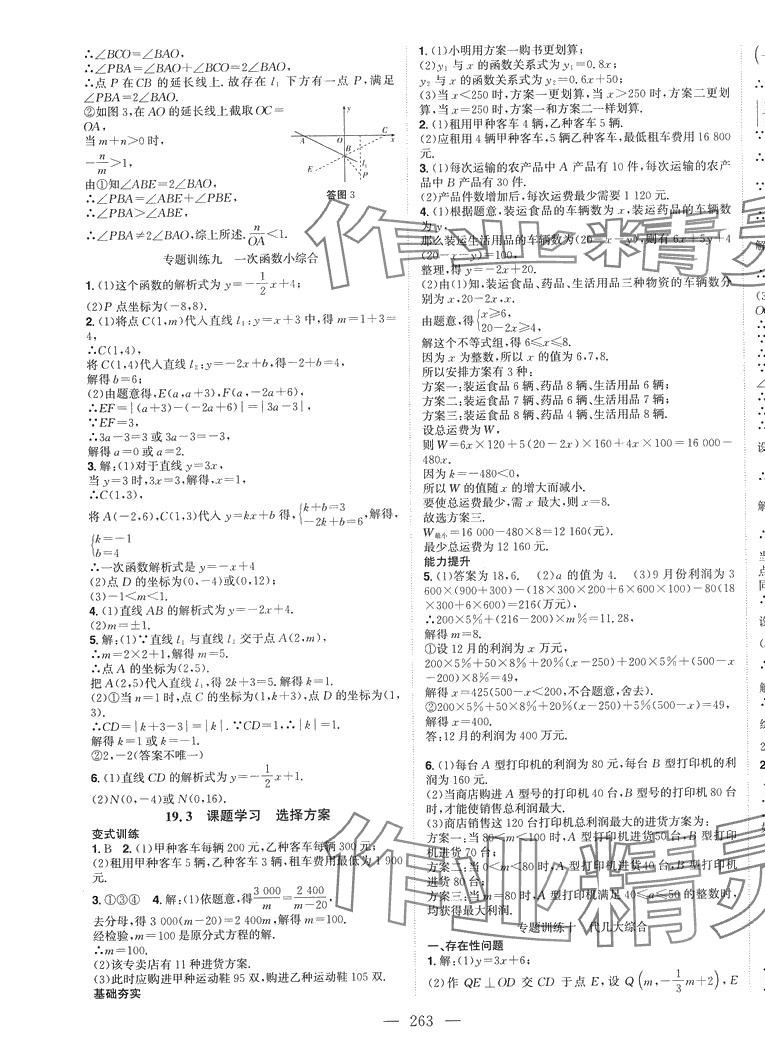 ∴∠BCO=∠BAO,
∴∠PBA=∠BAO+∠BCO=2∠BAO.
∴点 P 在 CB 的延长线上. 故存在 l₁ 下方有一点 P, 满足
∠PBA=2∠BAO.
②如图 3,在 AO 的延长线上截取 OC=
OA,
当 m+n>0 时,
-n/m>1,
由①知∠ABE=2∠BAO,
∴∠PBA=∠ABE+∠PBE,
∴∠PBA>∠ABE,
∴∠PBA≠2∠BAO,综上所述. n/OA<1.
y
A
O
C
x
B
E
P
l₁
答图 3
专题训练九 一次函数小综合
1. (1)这个函数的解析式为 y=-1/2x+4;
(2)P 点坐标为(-8,8).
2. (1)将点 C(1,m)代入直线 l₁:y=x+3 中,得 m=1+3=
4,
∴C(1,4),
将 C(1,4)代入直线 l₂:y=-2x+b,得-2+b=4,
解得 b=6;
(2)由题意得,E(a,a+3),F(a,-2a+6)
∴EF=|(a+3)-(-2a+6)|=|3a-3|,
∵EF=3,
∴3a-3=3 或 3a-3=-3,
解得 a=0 或 a=2.
3. 解:(1)对于直线 y=3x,
当 y=3 时,3x=3,x=1,
∴C(1,3),
将 A(-2,6),C(1,3)代入 y=kx+b 得,{k+b=3 -2k+b=6,解得,
{k=-1 b=4
∴一次函数解析式是 y=-x+4
(2)点 D 的坐标为(0,-4)或(0,12);
(3)-1<m<1.
4. (1)直线 AB 的解析式为 y=-2x+4.
(2)m=±1.
5. 解:(1)∵直线 l₁ 与直线 l₂ 交于点 A(2,m),
∴m=2×2+1,解得 m=5.
∴点 A 的坐标为(2,5).
把 A(2,5)代入直线 l₂ 的表达式得 k=1.
(2)①当 n=1 时,点 C 的坐标为(1,k+3),点 D 的坐标为(1,
3).
∴CD=|k+3-3|=|k|. ∵CD=1,∴|k|=1.
解得 k=1 或 k=-1.
②2,-2(答案不唯一)
6. (1)直线 CD 的解析式为 y=-1/2x+1.
(2)N(0,-4)或 N(0,16).
19. 3 课题学习 选择方案
变式训练
1. B 2. (1)甲种客车每辆 200 元,乙种客车每辆 300 元;
(2)租用甲种客车 5 辆,乙种客车 3 辆,租车费用最低为 1 900
元.
3. ①③④ 4. 解:(1)依题意,得3 000/m=2 400/m-20,
去分母,得 3 000(m-20)=2 400m,解得
经检验,m=100 是原分式方程的解.
∴m=100.
(2)该专卖店有 11 种进货方案.
(3)此时应购进甲种运动鞋 95 双,购进乙种运动鞋 105 双.
基础夯实
1. (1)小明用方案一购书更划算;
(2)y₁ 与 x 的函数关系式为 y₁=0.8x;
y₂ 与 x 的函数关系式为 y₂=0.6x+50;
(3)当 x<250 时,方案一更划算,当 x>250 时,方案二更划
算,当 x=250 时,方案一和方案二一样划算.
2. (1)租用甲种客车 4 辆,乙种客车 5 辆.
(2)应租用 4 辆甲种客车,5 辆乙种客车,最低租车费用 16 800
元.
3. (1)每次运输的农产品中 A 产品有 10 件,每次运输的农产
品中 B 产品有 30 件.
(2)产品件数增加后,每次运费最少需要 1 120 元.
4. (1)根据题意,装运食品的车辆数为 x,装运药品的车辆数
为 y,
那么装运生活用品的车辆数为(20-x-y),则有 6x+5y+4
(20-x-y)=100,
整理,得 y=-2x+20.
(2)由(1)知,装运食品、药品、生活用品三种物资的车辆数分
别为 x,20-2x,x.
由题意,得{x≥6, 20-2x≥4,
解这个不等式组,得 6≤x≤8.
因为 x 为整数,所以 x 的值为 6,7,8.
所以安排方案有 3 种:
方案一:装运食品 6 辆、药品 8 辆、生活用品 6 辆;
方案二:装运食品 7 辆、药品 6 辆、生活用品 7 辆;
方案三:装运食品 8 辆、药品 4 辆、生活用品 8 辆.
设总运费为 W,
则 W=6x×120+5(20-2x)×160+4x×100=16 000-
480x.
因为 k=-480<0,
所以 W 的值随 x 的增大而减小.
要使总运费最少,需 x 最大,则 x=8.
故选方案三.
W最小=16 000-480×8=12 160(元).
最少总运费为 12 160 元.
能力提升
5. (1)答案为 18,6. (2)a 的值为 4. (3)9 月份利润为 3
600×(900+300)-(18×300×200+6×600×100)-80(18
×300+6×600)=216(万元),
∴200×5%+(216-200)×m%=11.28,
解得 m=8.
①设 12 月的利润为 x 万元,
200×5%+50×8%+20%(x-250)+200×5%+(500-x
-200)×8%=49,
解得 x=425(500-x<200,不合题意,舍去).
②200×5%+50×8%+20%(x-250)+5%×(500-x)=49,
解得 x=400.
答:12 月的利润为 400 万元.
6. (1)每台 A 型打印机的利润为 80 元,每台 B 型打印机的利
润为 160 元.
(2)当商店购进 A 型打印机 20 台,购进 B 型打印机 80 台
时,才能使销售总利润最大.
(3)商店销售这 120 台打印机总利润最大的进货方案为:
方案一:当 80<m<100 时,A 型打印机进货50 台,B 型打印
机进货 70 台;
方案二:当 0<m<80 时,A 型打印机进货40 台,B 型打印机
进货 80 台;
方案三:当 m=80 时,A 型打印机满足 40≤a≤50 的整数时,
均获得最大利润.
专题训练十 代几大综合
一、存在性问题
1. 解:(1)y=3x+6;
(2)作 QE⊥OD 交 CD 于点 E,设 Q(m,-1/3m+2),E
— 263 —
作业精灵
作业精灵